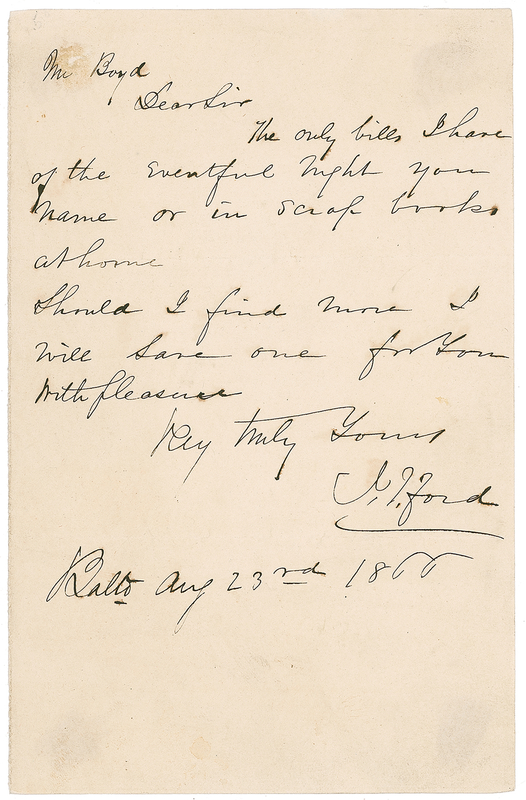 Mr Boyd
Dear Sir
The only bills I have
of the eventful night you
name or in scrap books
at home
Should I find more I
will save one for You
with pleasure
Very truly Yours
J. T. Ford
Balto Aug 23rd 1866